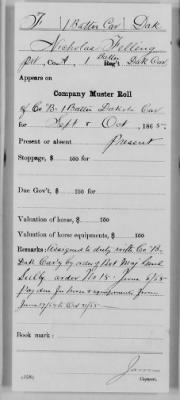 F | 1 Batt'n Cav | Dak
Nicholas Felling
Pvt, Co. A, 1 Batt'n Reg't Dak Cav
Appears on
Company Muster Roll
of Co B, 1 Batt'n Dakota Cav
for Sept & Oct, 1865.
Present or absent Present
Stoppage, $ 100 for
Due Gov't, $ 100 for
Valuation of horse, $ 100
Valuation of horse equipments, $ 100
Remarks: Assigned to duty with Co "B"
Dak Cav'y by order of Bvt Maj Genl
Sully order No 18 June 6/65
pay due for horse & equipments from
June 17/65 to Oct 31/65
Book mark:
(858)
Copyist.